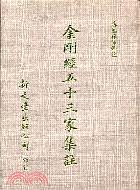 金剛經五十三家集註
新文豐出版公司印行